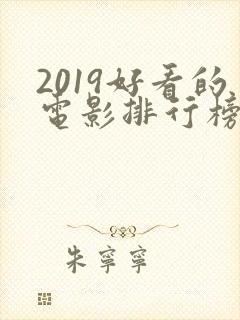 2019好看的
電影排行榜
朱寧寧